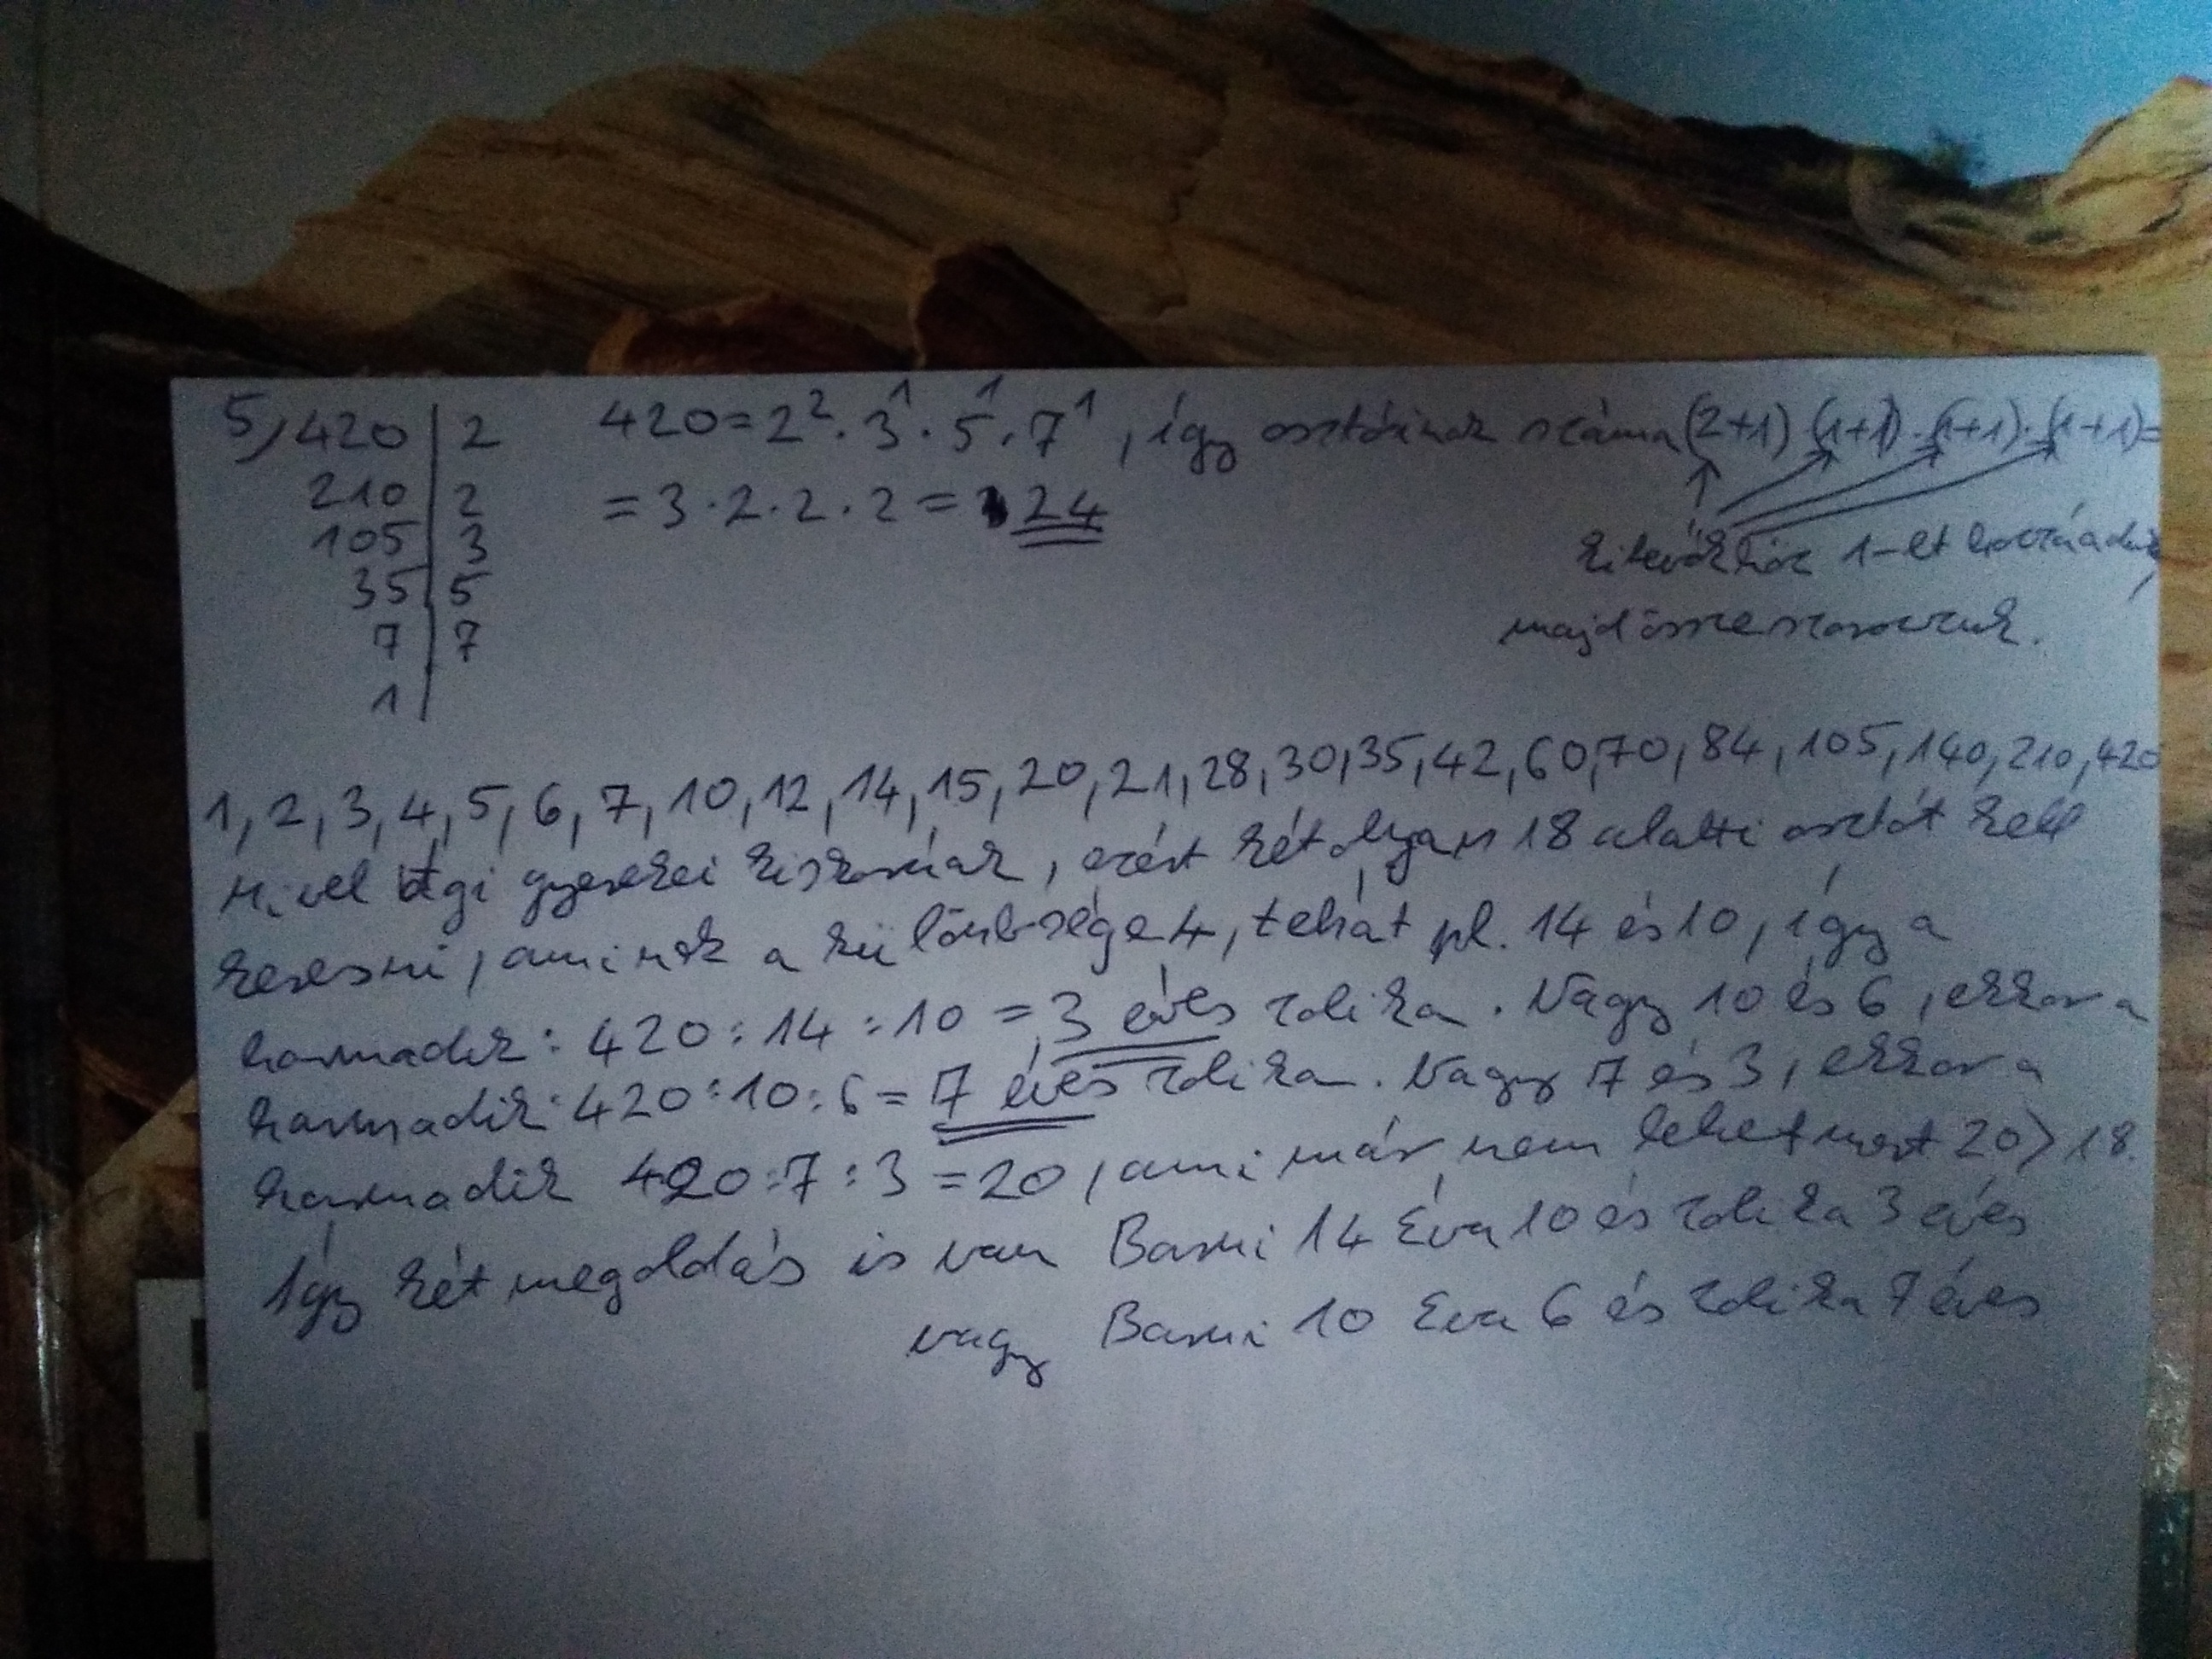 5, 420 | 2 420 = 2² · 3¹ · 5¹ · 7¹, így osztóinak száma (2+1) · (1+1) · (1+1) · (1+1) =
210 | 2 = 3 · 2 · 2 · 2 = 24
105 | 3 kitevőkhöz 1-et hozzáadunk,
35 | 5
7 | 7 majd összeszorozzuk.
1 |
1, 2, 3, 4, 5, 6, 7, 10, 12, 14, 15, 20, 21, 28, 30, 35, 42, 60, 70, 84, 105, 140, 210, 420
Mivel gyerekei kiskorúak, ezért két olyan 18 alatti osztót kell
keresni, aminek a különbsége 4, tehát pl. 14 és 10, így a
harmadik: 420 : 14 : 10 = 3 éves Zolika. Vagy 10 és 6, ekkor a
harmadik: 420 : 10 : 6 = 7 éves Zolika. Vagy 7 és 3, ekkor a
harmadik 420 : 7 : 3 = 20, ami már nem lehet mert 20 > 18.
Így két megoldás is van Barni 14 Éva 10 és Zolika 3 éves
vagy Barni 10 Éva 6 és Zolika 7 éves